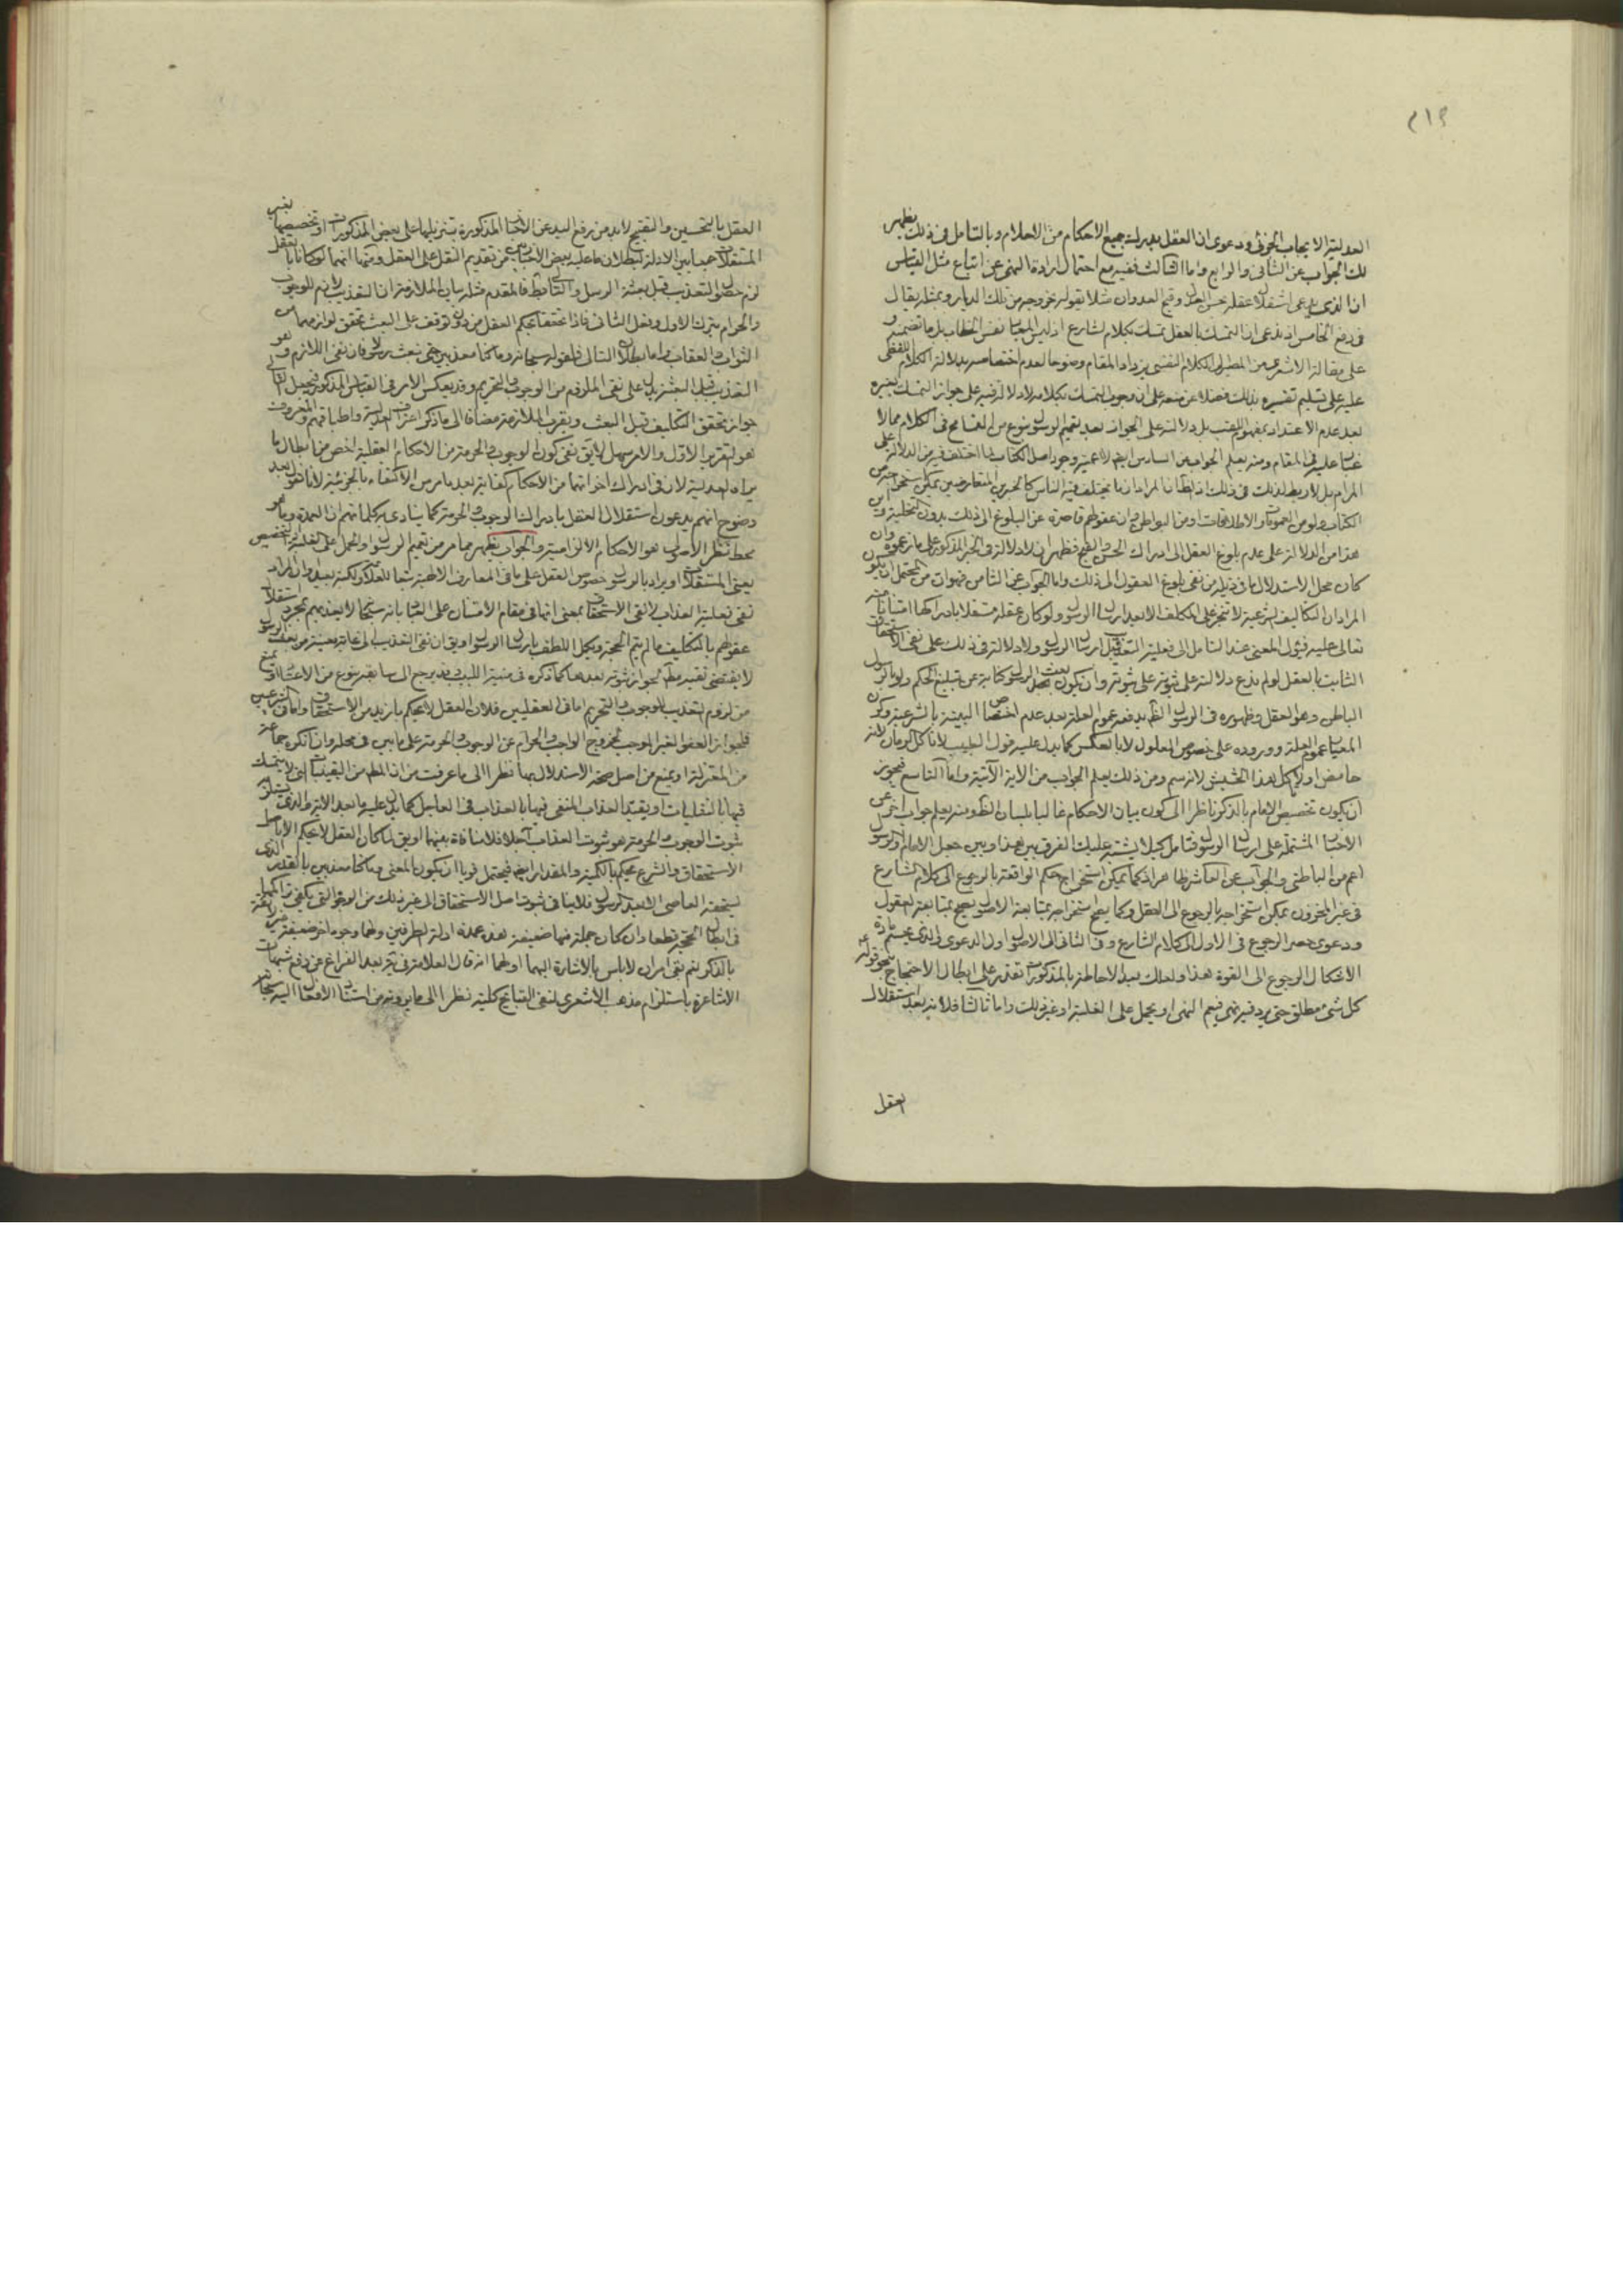 ٢١٩
العدلية الايجاب الجزئى ودعوى ان العقل يدرك جميع الاحكام من الاحلام وبالتامل فى ذلك يظهر
لك الجواب عن الثانى والرابع واما الثالث ففيه مع احتمال ارادة النهى عن اتباع مثل القياس
ان الذى يدعى استقلال عقله بحسن العدل وقبح العدوان مثلا يقول بخروجه من تلك الديار وبمثله يقال
فى دفع الخامس اذ يدعى ان التمسك بالعقل تمسك بكلام الشارع اذ ليس المعيار نفس الخطاب بل ما تضمنه و
على مقالة الاشعرى من الكلام النفسى يزداد المقام وضوحا لعدم اختصاصه بدلالة الكلام اللفظى
عليه على تسليم تفسيره بذلك فضلا عن منعه على ان وجوب التمسك بكلامه لا دلالة فيه على جواز التمسك بغيره
بعد عدم الاعتداد بمفهوم اللقب بل دلالته على الجواز بعد تعميم الرسول بنوع من التسامح فى الكلام مما لا
غبار عليه فى المقام ومنه يعلم الجواب عن السادس ايضا
المرام بل لا ربط لذلك فى ذلك اذ الظاهر ان المراد ان ما يختلف فيه الناس كالخبرين المتعارضين يمكن
الكتاب ولو من العمومات والاطلاقات او من البواطن وان عقولهم قاصرة عن البلوغ الى ذلك بدون التخلية و
هذا من الدلالة على عدم بلوغ العقل الى ادراك الحسن والقبح فظهر ان لا دلالة فى الخبر المذكور على ما زعموه وان
كان محل الاستدلال ما فى ذيله من نفى بلوغ العقول الى ذلك واما الجواب عن الثامن فهو ان من المحتمل ان يكون
المراد ان التكاليف الشرعية لا تنجز على المكلف الا بعد ارسال الرسول ولو كان عقله مستقلا بادراكها امتنانا منه
تعالى عليه فيؤل المعنى عند التامل الى نفى فعلية التعذيب قبل ارسال الرسول ولا دلالة فى ذلك على نفى الاستحقاق
الثابت بالعقل لو لم ندع دلالته على ثبوته وان يكون بعث الرسول كناية عن تبليغ الحكم ولو بالرسول
الباطن وهو العقل وظهوره فى الرسول الظاهر يدفعه عموم العلة بعد عدم اختصاص البينة بالشرعية وكون
المعيار عموم العلة ووروده على خصوص المعلول لا بالعكس كما يدل عليه قول الطبيب لا تاكل الرمان لانه
حامض او لا تاكل هذا الحشيش لانه سم ومن ذلك يعلم الجواب عن الاية الآتية واما التاسع فيجوز
ان يكون تخصيص الامام بالذكر ناظرا الى كون بيان الاحكام غالبا بلسان الظاهر ومنه يعلم جواب اخر عن
الاخبار المشتملة على ارسال الرسول فتامل كيلا يشتبه عليك الفرق بين هذا وبين جعل الامام والرسول
اعم من الباطنى والجواب عن العاشر ظاهر اذ كما يمكن استخراج حكم الواقعة بالرجوع الى كلام الشارع
فى غير المخزون يمكن استخراجه بالرجوع الى العقل وكما يصح استخراجه بمتابعة الاصول يصح بمتابعة العقول
ودعوى حصر الرجوع فى الاول الى كلام الشارع وفى الثانى الى الاصول اول الدعوى والذى يحسم مادة
الاشكال الرجوع الى القوة هذا ولعلك بعد الاحاطة بالمذكورات تقتدر على ابطال الاحتجاج بنحو قوله
كل شئ مطلق حتى يرد فيه نهى فيعم النهى او يحمل على الغلبة او غير ذلك واما ثالثا فلانه بعد استقلال
العقل
العقل بالتحسين والتقبيح لا بد من رفع اليد عن الاخبار المذكورة بتنزيلها على بعض المذكورات او تخصيصها بغير
المستقلات جمعا بين الادلة لبطلان ما عليه بعض الاخباريين من تقديم النقل على العقل ومنها انهما لو كانا بالعقل
لزم حصول التعذيب قبل بعثة الرسل والتالى باطل فالمقدم مثله بيان الملازمة ان التعذيب لازم للوجوب
والحرام بترك الاول وفعل الثانى فاذا تحققا بحكم العقل من دون توقف على البعث تحقق لوازمهما من
الثواب والعقاب واما بطلان التالى فلقوله سبحانه وما كنا معذبين حتى نبعث رسولا فان نفى اللازم وهو
التعذيب قبل البعثة يدل على نفى الملزوم من الوجوب والتحريم وقد يعكس الامر فى القياس المذكور فيجعل التالى
جواز تحقق التكليف قبل البعث ويقرب الملازمة مضافا الى ما ذكر اعتراف العدلية واطباقهم والمعروف
هو التقرير الاول والامر سهل لا يق نفى كون الوجوب والحرمة من الاحكام العقلية اخص من ابطال ما
يراه العدلية لان فى ادراك اخواتهما من الاحكام كفاية بعد ما مر من الاكتفاء بالجزئية لانا نقول بعد
وضوح انهم يدعون استقلال العقل بادراك الوجوب والحرمة كما ينادى به كلماتهم ان العمدة وما هو
محط نظر الاصولى هو الاحكام الالزامية والجواب يظهر مما مر من تعميم الرسول او الحمل على الغلبة او التخصيص
بغير المستقلات او يراد بالرسول خصوص العقل على ما فى المعارف الالهية تبعا للعلامة ولكنه بعيد او ان المراد
نفى فعلية العذاب لا نفى الاستحقاق بمعنى انها فى مقام الامتنان على العباد بانه سبحانه لا يعذبهم بمجرد استقلال
عقولهم بالتكليف ما لم يتم الحجة ويكمل اللطف بارسال الرسول او يق ان نفى التعذيب الى غاية معينة من بعث الرسول
لا يقتضى تقييد
من لزوم التعذيب للوجوب والتحريم اما فى العقليين فلان العقل لا يحكم بازيد من الاستحقاق واما فى الشرعيين
فلجواز العفو الغير الموجب لخروج الواجب والحرام عن الوجوب والحرمة على ما بين فى محله وان انكره جماعة
من المعتزلة او يمنع من اصل صحة الاستدلال بها نظرا الى ما عرفت من ان المطلب من اليقينيات التى لا يتمسك
فيها بالنقليات او يقيد العذاب المنفى فيها بالعذاب فى العاجل كما يدل عليه ما بعد الاية والذى يستلزمه
ثبوت الوجوب والحرمة هو ثبوت العذاب آجلا فلا منافاة بينهما او يق لما كان العقل لا يحكم الا باصل
الاستحقاق والشرع يحكم بالكمية والمقدار ايضا فيحتمل قويا ان يكون المعنى وما كنا معذبين بالقدر الذى
يستحقه العاصى الا بعد الرسول فلا ينافى ثبوت اصل الاستحقاق الى غير ذلك من الوجوه التى يكفى تراكمها
فى ابطال الحجة قطعا وان كان جملة منها ضعيفة هذه عمدة ادلة الطرفين ولهما وجوه اخر ضعيفة غير لائقة
بالذكر نعم بقى امران لا باس بالاشارة اليهما اولهما انه قال العلامة فى يه بعد الفراغ عن دفع شبهات
الاشاعرة باستلزام مذهب الاشعرى لنفى القبائح كلية نظرا الى ما يرونه من استناد الافعال اليه سبحانه